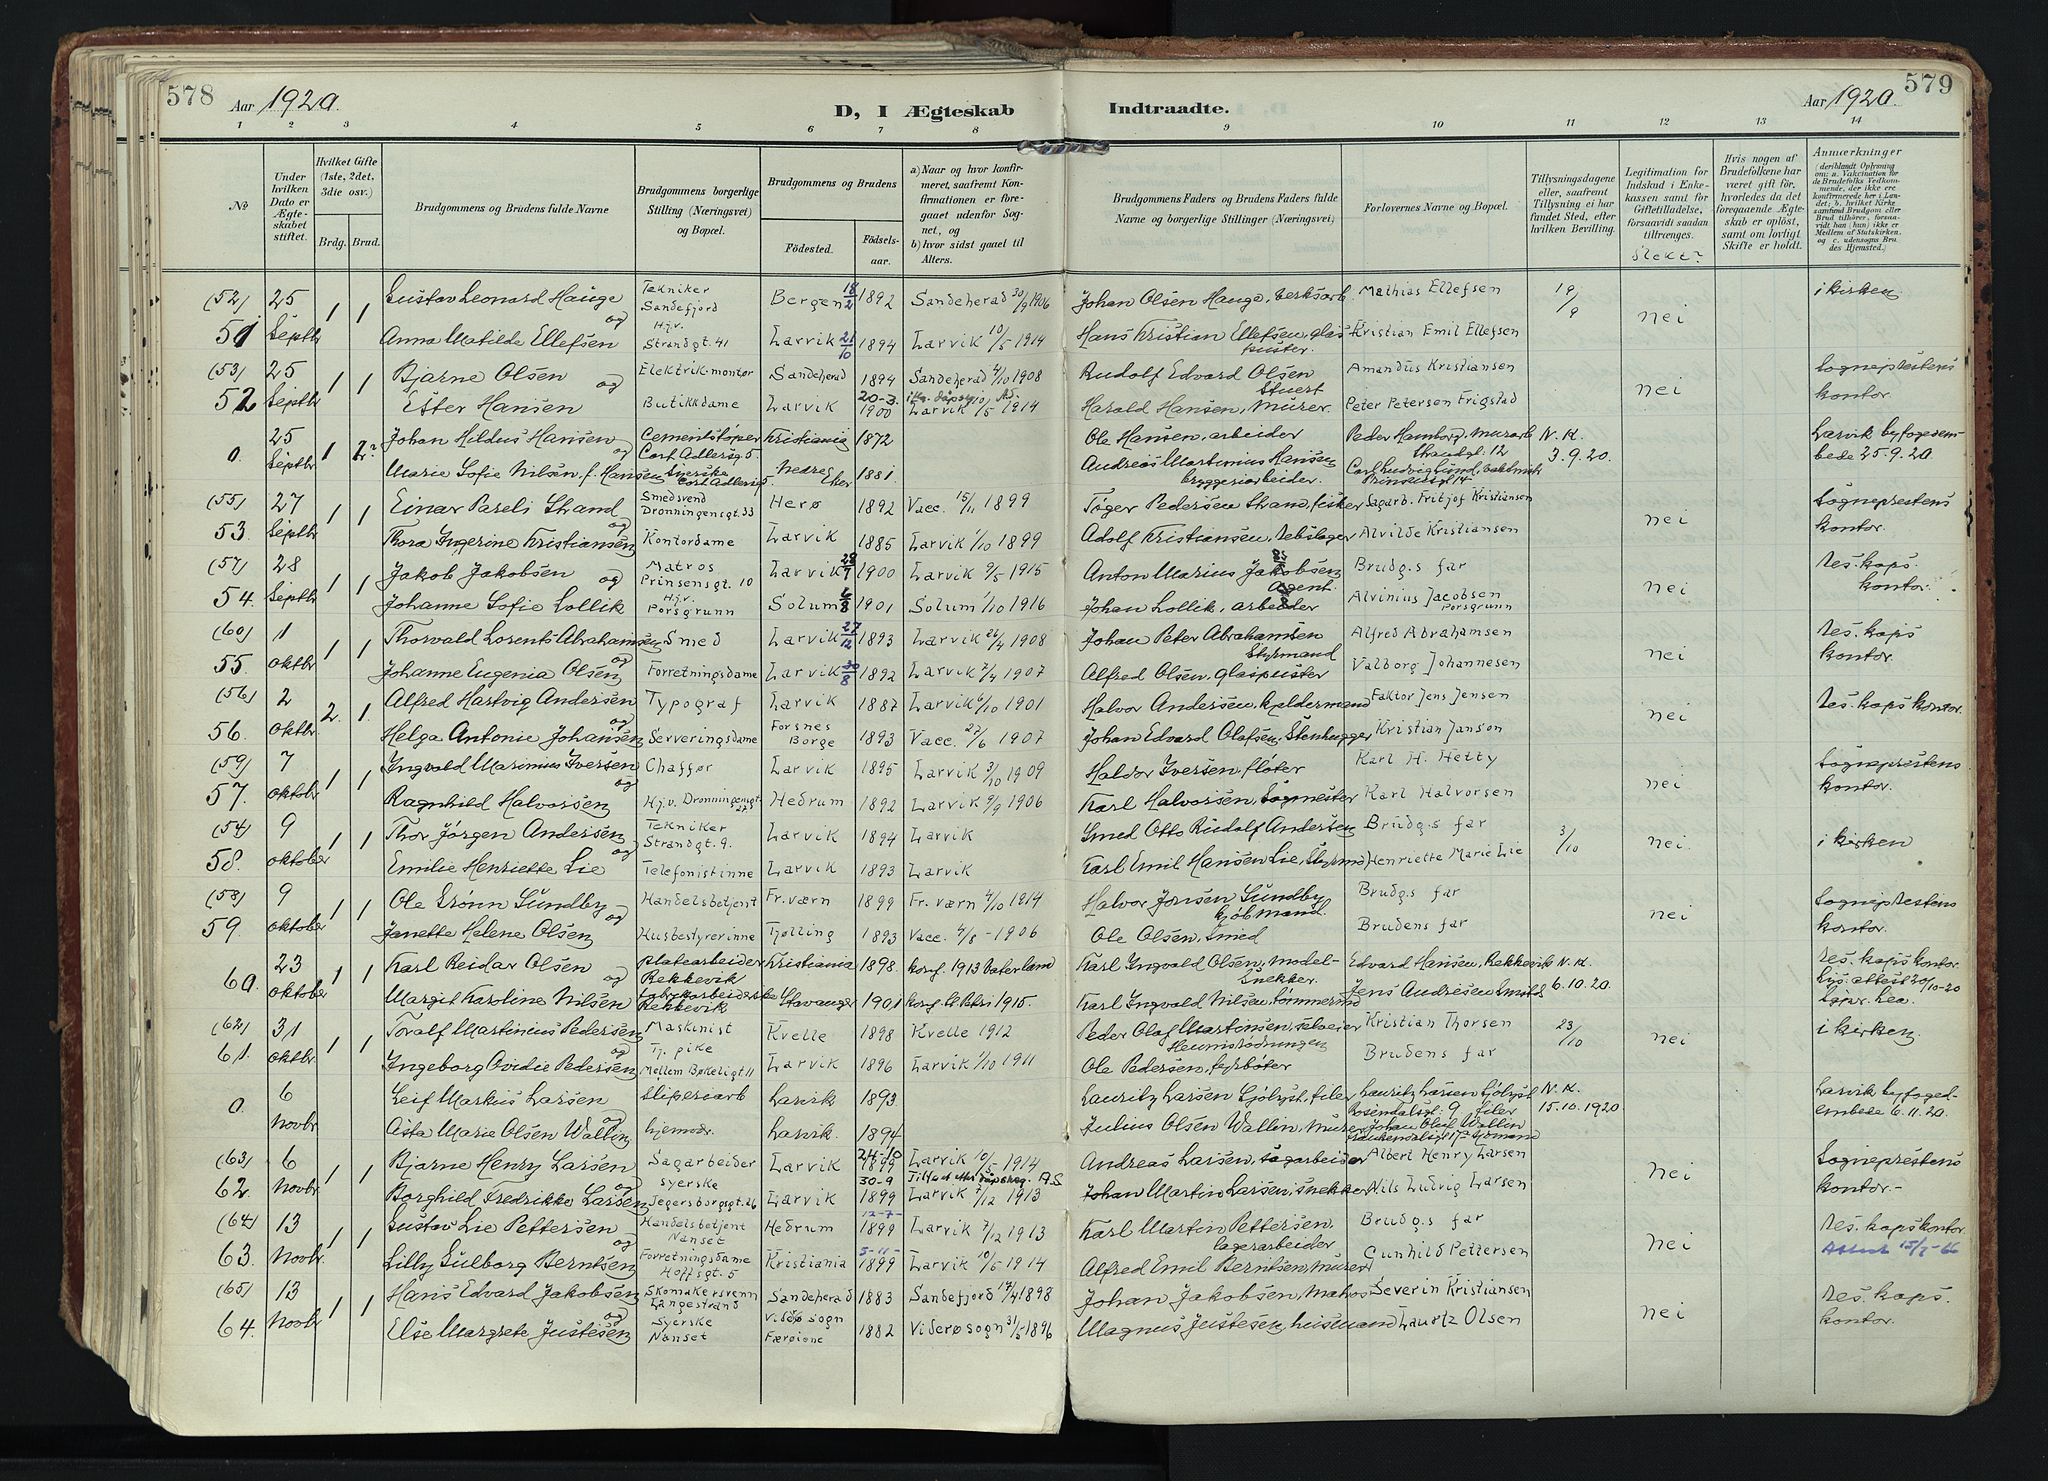 578
Aar 1920.
D, I Ægteskab
Indtraadte.
Aar 1920.
579
1 2 3 4 5 6 7 8 9 10 11 12 13 14
No
Under hvilken Dato er Ægteskabet stiftet.
Hvilket Gifte (1ste, 2det, 3die osv.)
Brdg. Brud.
Brudgommens og Brudens fulde Navne
Brudgommens borgerlige Stilling (Næringsvei) og Bopæl.
Brudgommens og Brudens
Födested.
Födselsaar.
a) Naar og hvor konfirmeret, saafremt Konfirmationen er foregaaet udenfor Sognet, og
b) hvor sidst gaaet til Alters.
Brudgommens Faders og Brudens Faders fulde Navne og borgerlige Stillinger (Næringsvei)
Forlovernes Navne og Bopæl.
Tillysningsdagene eller, saafremt Tillysning ei har fundet Sted, efter hvilken Bevilling.
Legitimation for Indskud i Enkekassen samt for Giftetilladelse, forsaavidt saadan tiltrænges.
Slekt?
Hvis nogen af Brudefolkene har været gift før, hvorledes da det foregaaende Ægteskab er oplöst, samt om lovligt Skifte er holdt.
Anmærkninger
(deriblandt Oplysning om: a. Vaccination for de Brudefolks Vedkommende, der ikke ere konfirmerede her i Landet; b. hvilket Kirkesamfund Brudgom eller Brud tilhører, forsaavidt han (hun) ikke er Medlem af Statskirken, og c. udensogns Brudes Hjemsted.)
(52) 25 1 1 Gustav Leonard Hauge Tekniker Sandefjord Bergen 18/2 1892 Sandeherad 30/9 1906 Johan Olsen Hauge, verksarb. Mathias Ellefsen 19/9 nei i kirken
51 Septbr og Anna Matilde Ellefsen Hjv. Strandgt. 41 Larvik 21/10 1894 Larvik 10/5 1914 Hans Kristian Ellefsen, glaspuster. Kristian Emil Ellefsen
(53) 25 1 1 Bjarne Olsen Elektrik. montør Sandeherad 1894 Sandeherad 4/10 1908 Rudolf Edvard Olsen Stuert Amandus Kristiansen nei Sogneprestens
52 Septbr og Ester Hansen Butikkdame Larvik 20-3. 1900 Larvik 10/5 1914 Harald Hansen, Murer. Peter Petersen Frigstad kontor.
0. 25 1 2? Johan Hildus Hansen Cementstøper Cort Adlersg 5 Kristiania 1872 Ole Hansen, arbeider Peder Hamborg, Murarb Strandgt. 12 N. K. Larvik byfogdem-
Septbr og Marie Sofie Nilsen, f. Hansen Syerske Cort Adlersg 5. Nedre Eker 1881 Andreas Martinius Hansen bryggeriarbeider. Carl Ludvig Lund, vaktmstr Prinsensgt 14 3.9.20. bede 25.9.20.
(55) 27 1 1 Einar Pareli Strand Smedsvend Dronningensgt. 33 Herø 1892 Vacc. 15/11 1899 Tøger Pedersen Strand, fisker Sagarb. Fritjof Kristiansen nei Sogneprestens
53. Septbr og Thora Ingerine Kristiansen Kontordame Larvik 1885 Larvik 1/10 1899 Adolf Kristiansen, Rebslager Alvilde Kristiansen kontor.
(57) 28 1 1 Jakob Jakobsen Matros Prinsensgt. 10 Larvik 28/7 1900 Larvik 9/5 1915 Anton Marius Jakobsen agent. Brudg.s far nei Res. kaps.
54. Septbr og Johanne Sofie Lollik Hjv. Porsgrunn Solum 6/8 1901 Solum 1/10 1916 Johan Lollik, arbeider Alvinius Jacobsen Porsgrunn kontor.
(60) 1 1 1 Thorvald Lorents Abrahamsen Smed Larvik 27/12 1893 Larvik 22/4 1908 Johan Peter Abrahamsen Styrmand Alfred Abrahamsen nei Res. kaps
55 oktbr og Johanne Eugenia Olsen Forretningsdame Larvik 30/8 1892 Larvik 7/4 1907 Alfred Olsen, glaspuster Valborg Johannesen kontor.
(56) 2 2. 1. Alfred Hartvig Andersen Typograf Larvik 1887 Larvik 6/10 1901 Halvor Andersen, kjeldermand Faktor Jens Jensen nei Res. kaps kontor.
56. oktbr. og Helga Antonie Johansen Serveringsdame Forsnes Borge 1893 Vacc. 27/6 1907 Johan Edvard Olafsen, Stenhugger Kristian Janson
(59) 7 1 1 Ingvald Marinius Iversen Chaffør Larvik 1895 Larvik 3/10 1909 Haldor Iversen, fløter Karl H. Hetty nei Sogneprestens
57. oktobr og Ragnhild Halvorsen Hj.v. Dronningensgt 27. Hedrum 1892 Larvik 9/9 1906 Karl Halvorsen, Sagmester Karl Halvorsen kontor.
(54) 9 1 1 Thor Jørgen Andersen Tekniker Strandgt. 9. Larvik 1894 Larvik Smed Otto Rudolf Andersen Brudg.s far 3/10 nei. i kirken
58. oktober og Emilie Henriette Lie Telefonistinne Larvik 1893 Larvik Karl Emil Hansen Lie, Styrmd Henriette Marie Lie
(58) 9 1 1 Ole Grønn Sundby Handelsbetjent Fr. værn 1899 Fr. værn 4/10 1914 Halvor Jonsen Sundby kjøbmand. Brudg.s far nei Sogneprestens
59. oktober og Janette Helene Olsen Husbestyrerinne Tjølling 1893 Vacc. 4/8 - 1906 Ole Olsen, Smed Brudens far kontor.
60. 23 1 1 Karl Reidar Olsen platearbeider Rekkevik Kristiania 1898. konf. 1913 Vaterland Karl Ingvald Olsen, modelsnekker. Edvard Hansen, Rekkevik N. K. Res. kaps kontor
oktober og Margit Karoline Nilsen Fabrikarbeiderske Rekkevik Stavanger 1901 konf. St Petri 1915. Karl Ingvald Nilsen, tømmermd Jens Andresen Smith 6.10.20. Lys. attest 20/10-20
(62) 31 1 1 Toralf Martinius Pedersen Maskinist Kvelle 1898 Kvelle 1912 Peder Olaf Martinsen, selveier Heumstødningen Kristian Thorsen 23/10 nei i kirken
61. oktbr. og Ingeborg Ovidie Pedersen Tj. pike Mellem Bøkeligt 11 Larvik 1896 Larvik 1/10 1911 Ole Pedersen, fyrbøter Brudens far
0. 6 Leif Markus Larsen Sliperiarb Larvik 1893 Lauritz Larsen Sjølyst, filer Lauritz Larsen Sjølyst Rosendalsgt. 9 filer N. K. Larvik byfoged-
Novbr. og Asta Marie Olsen Wallin hjemvær. Larvik. 1894 Julius Olsen Wallin, murer Johan Oluf Wallin 15.10.1920 embede 6.11.20.
(63) 6 1 1 Bjarne Henry Larsen Sagarbeider Larvik 24-10 1899 Larvik 10/5 - 1914 Andreas Larsen, sagarbeider Albert Henry Larsen nei Sogneprestens
62. Novbr. og Borghild Fredrikke Larsen syerske Jegersborgsgt. 26 Larvik 30-9 1899 Larvik 7/12 1913 Johan Martin Larsen, snekker Nils Ludvig Larsen kontor.-
(64) 13 1 1 Gustav Lie Pettersen Handelsbetjent Nanset Hedrum 12-7- 1899 Larvik 7/12 1913 Karl Martin Pettersen, lagerarbeider Brudg.s far nei Res. kaps kontor
63. Novbr. og Lilly Gulborg Berntsen Forretningsdame Hoffsgt. 5 Kristiania 5-11- 1899 Larvik 10/5 1914 Alfred Emil Berntsen, Murer Gunhild Pettersen
(65) 13 1 1 Hans Edvard Jakobsen Skomakersvenn Langestrand Sandeherad 1883 Sandefjord 17/4 1898 Johan Jakobsen, Matros Severin Kristiansen nei Res. kaps.
64. Novbr og Else Margrete Justesen Syerske Nanset Viderø sogn Færøiene 1882 Viderø sogn 31/5 1896 Magnus Justesen, husmand Lauritz Olsen kontor.